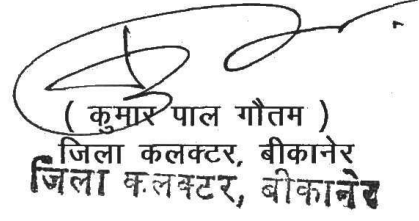 ( कुमार पाल गौतम )
जिला कलक्टर, बीकानेर
जिला कलक्टर, बीकानेर